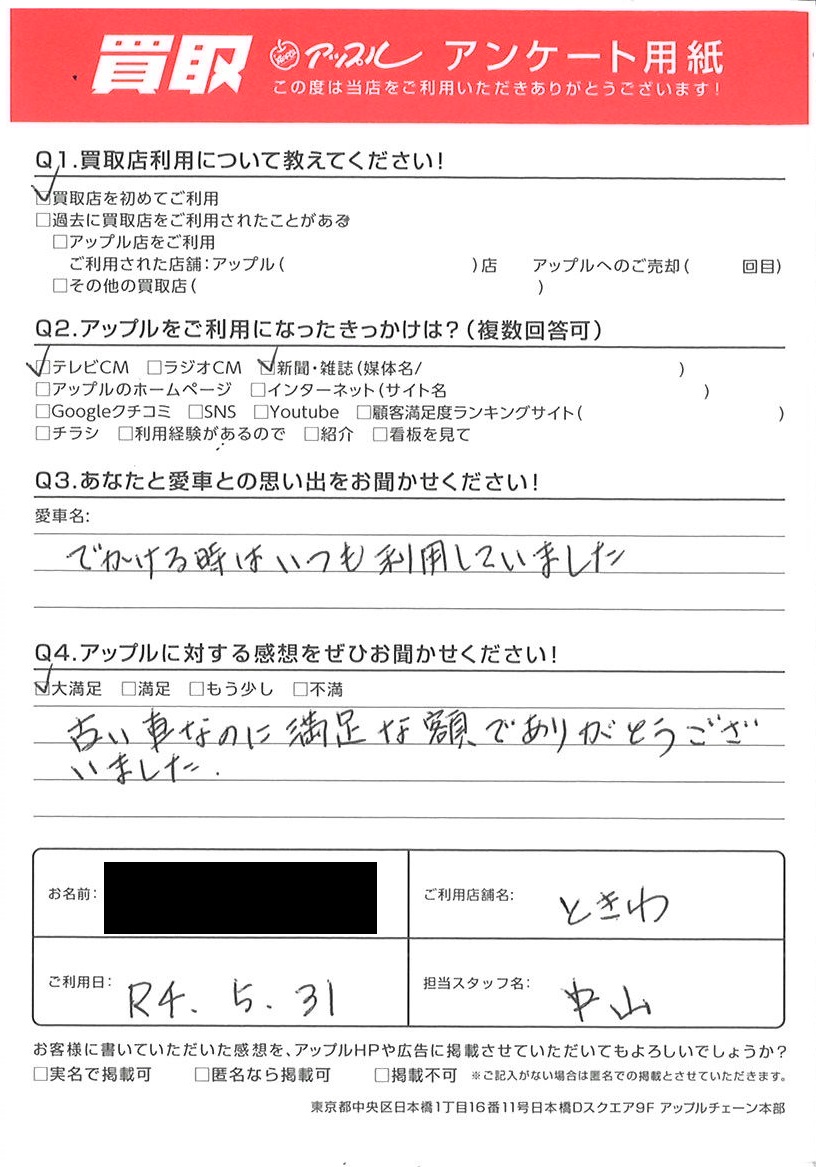 買取 アップル アンケート用紙
この度は当店をご利用いただきありがとうございます!
Q1.買取店利用について教えてください!
☑買取店を初めてご利用
□過去に買取店をご利用されたことがある
□アップル店をご利用
ご利用された店舗:アップル( )店 アップルへのご売却( 回目)
□その他の買取店( )
Q2.アップルをご利用になったきっかけは?(複数回答可)
☑テレビCM □ラジオCM ☑新聞・雑誌(媒体名/ )
□アップルのホームページ □インターネット(サイト名 )
□Googleクチコミ □SNS □Youtube □顧客満足度ランキングサイト( )
□チラシ □利用経験があるので □紹介 □看板を見て
Q3.あなたと愛車との思い出をお聞かせください!
愛車名:
でかける時はいつも利用していました
Q4.アップルに対する感想をぜひお聞かせください!
☑大満足 □満足 □もう少し □不満
古い車なのに満足な額でありがとうござ
いました.
お名前:
ご利用店舗名: ときわ
ご利用日: R4. 5. 31
担当スタッフ名: 中山
お客様に書いていただいた感想を、アップルHPや広告に掲載させていただいてもよろしいでしょうか?
□実名で掲載可 □匿名なら掲載可 □掲載不可 ※ご記入がない場合は匿名での掲載とさせていただきます。
東京都中央区日本橋1丁目16番11号日本橋Dスクエア9F アップルチェーン本部